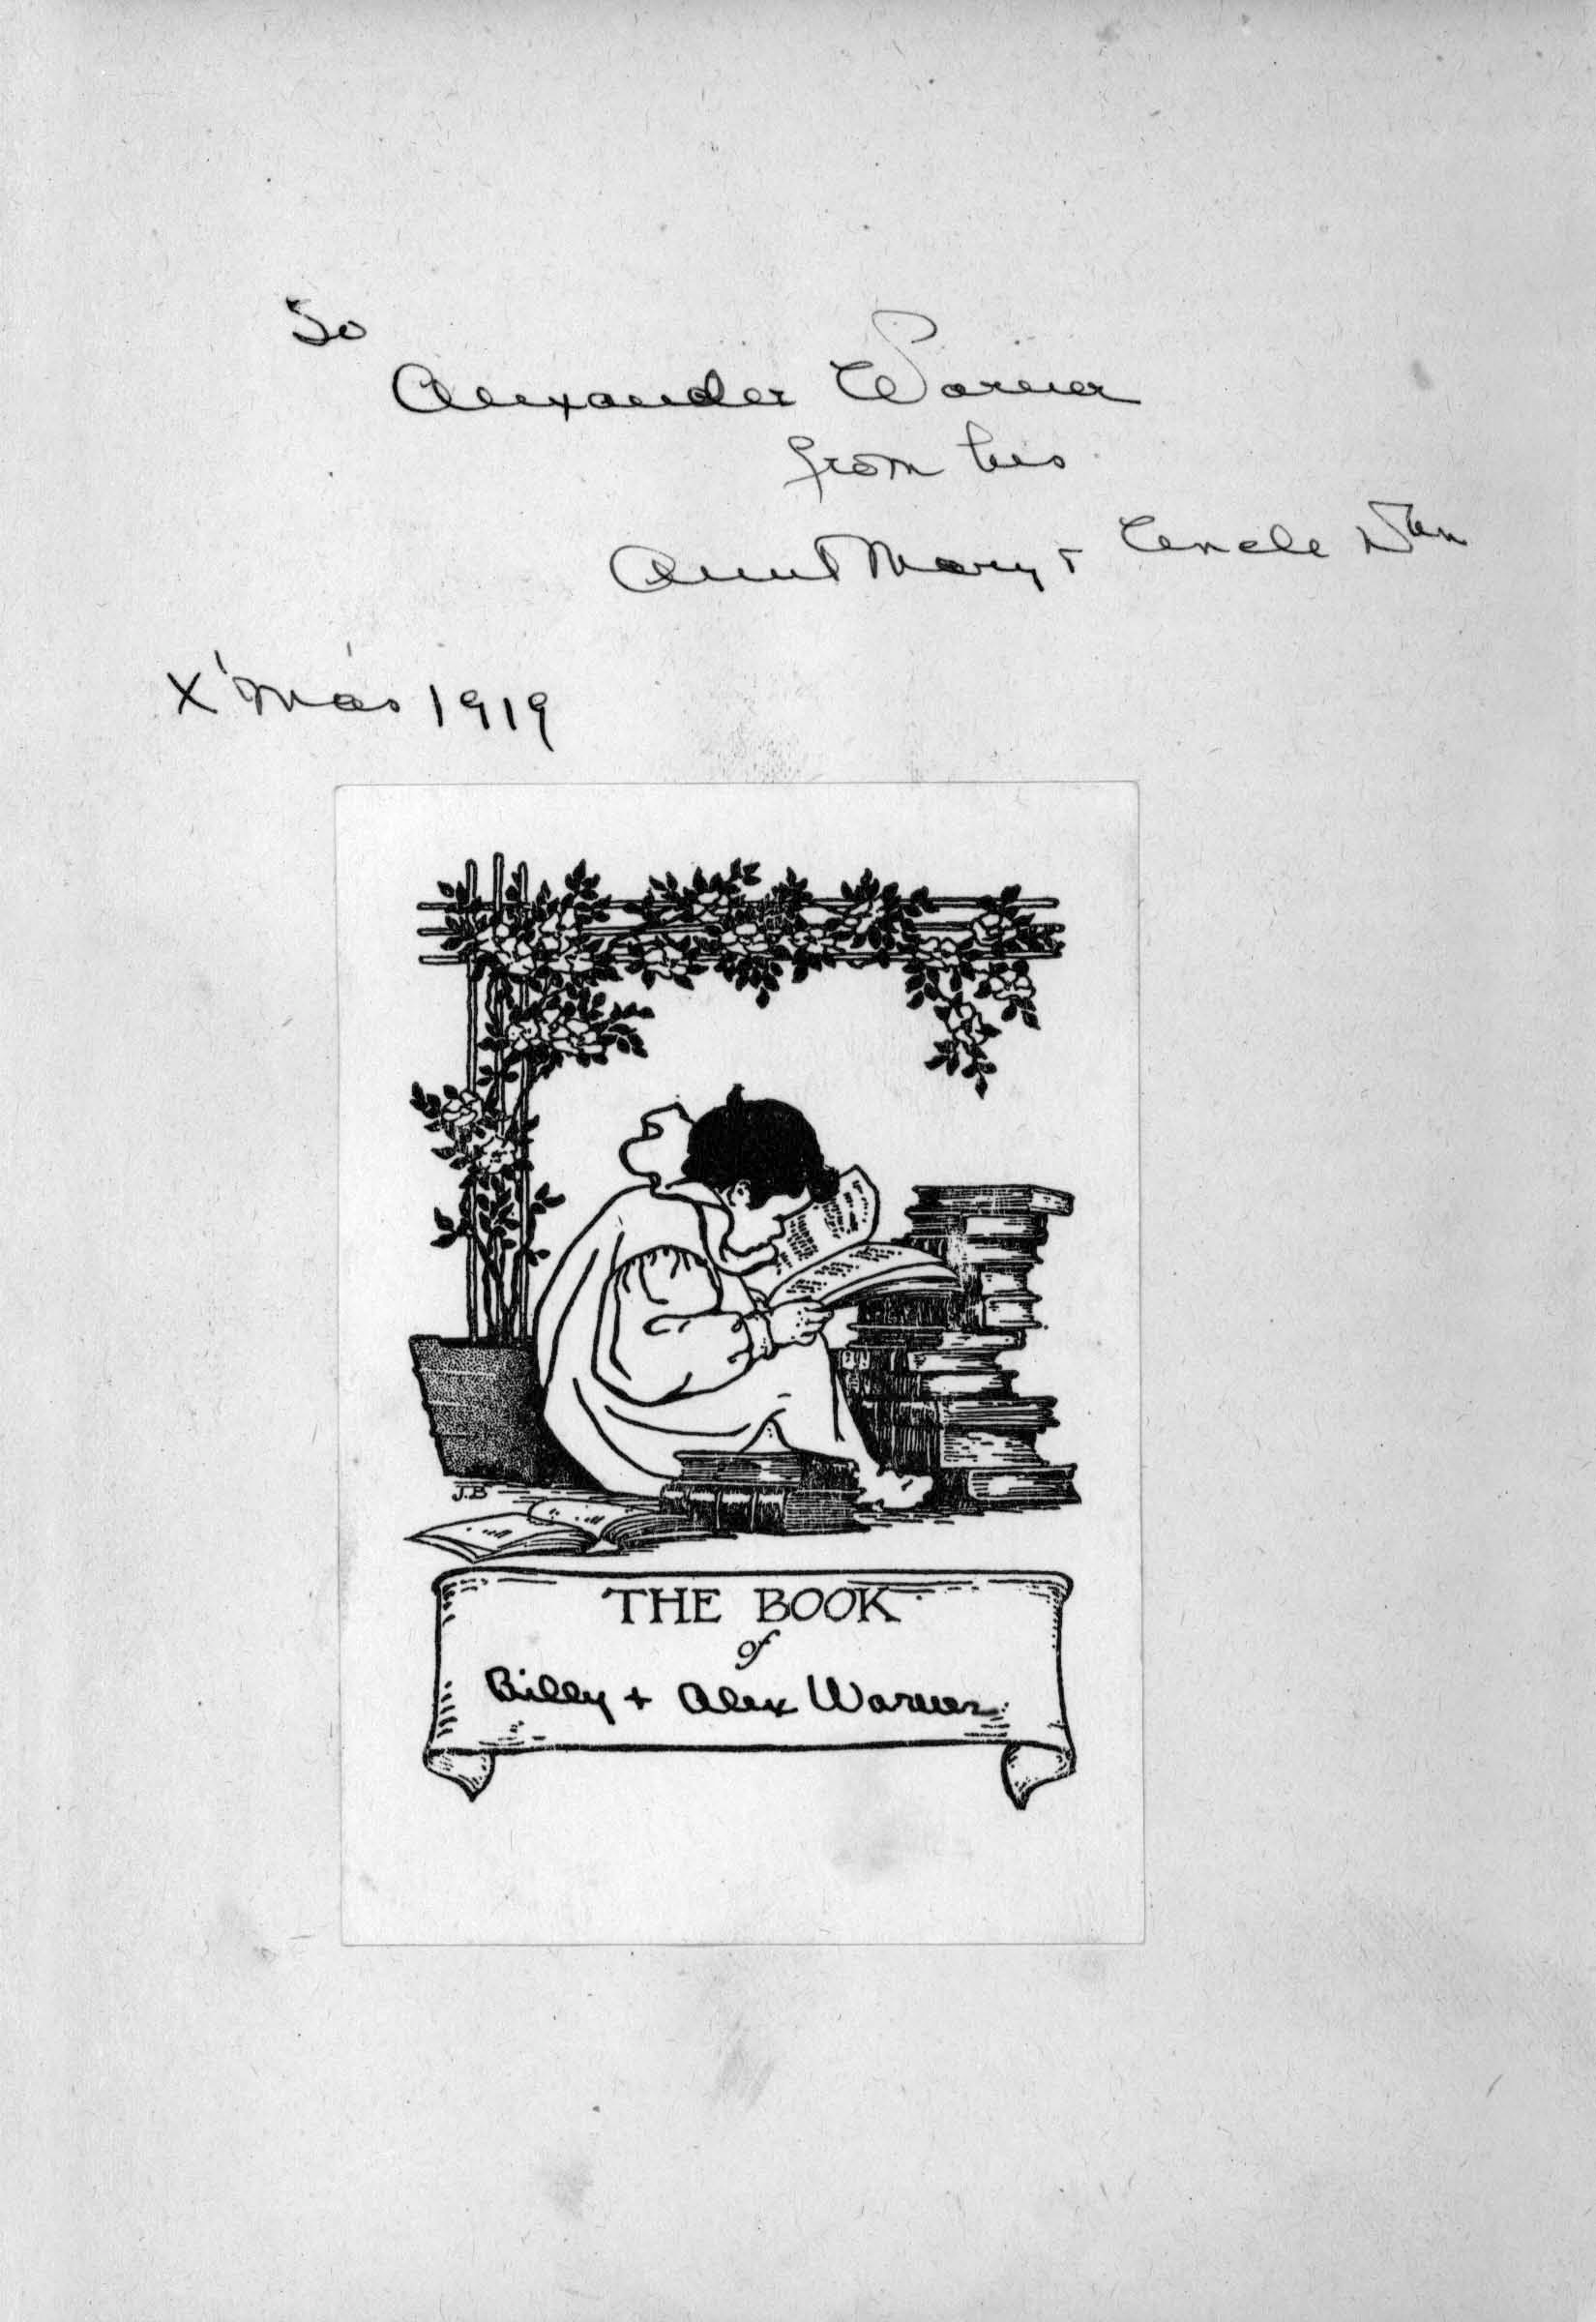 To
Alexander Warner
from his
Aunt Mary + Uncle Dan
X'mas 1919
J.B
THE BOOK
of
Billy + Alex Warner